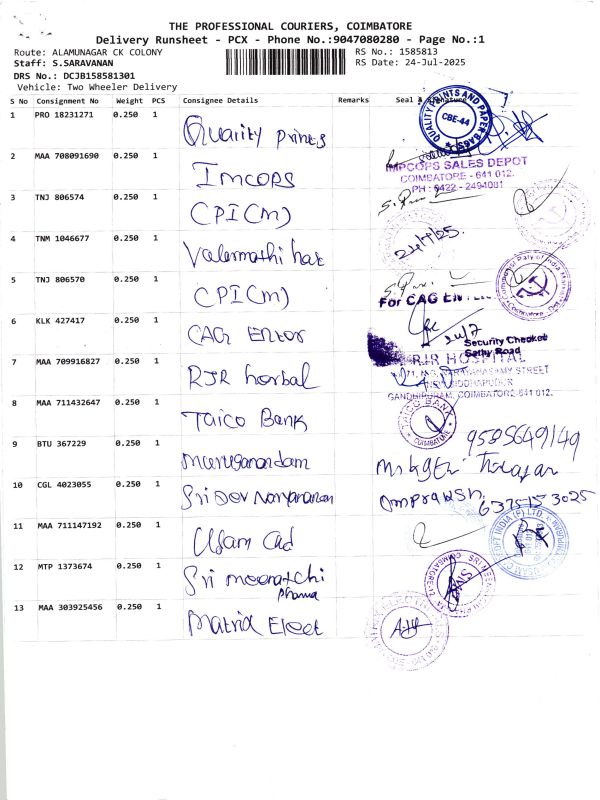 THE PROFESSIONAL COURIERS, COIMBATORE
Delivery Runsheet - PCX - Phone No.:9047080280 - Page No.:1
Route: ALAMUNAGAR CK COLONY
RS No.: 1585813
Staff: S.SARAVANAN
RS Date: 24-Jul-2025
DRS No.: DCJB158581301
Vehicle: Two Wheeler Delivery
S No Consignment No Weight PCS Consignee Details Remarks Seal & Signature
1 PRO 18231271 0.250 1 Quality prints
QUALITY PRINTS AND PAPER BAGS CBE-44
2 MAA 708091690 0.250 1 Imcops
IMPCOPS SALES DEPOT
COIMBATORE - 641 012.
PH : 0422 - 2494081
3 TNJ 806574 0.250 1 CPI(M)
4 TNM 1046677 0.250 1 Valarmathi
24/7/25.
5 TNJ 806570 0.250 1 CPI(M)
Communist Party of India
Coimbatore
For CAG
6 KLK 427417 0.250 1 CAG
24/7
Security Checked
Sathy Road
7 MAA 709916827 0.250 1 RJR herbal
RJR HOSPITAL
STREET
GANDHIPURAM, COIMBATORE-641 012.
8 MAA 711432647 0.250 1 Taico Bank
TAICO BANK
COIMBATORE
9 BTU 367229 0.250 1 muruganandam
9585649149
10 CGL 4023055 0.250 1 Sri Dev Narayanan
Omprakash.
6375153025
11 MAA 711147192 0.250 1 Usam Cad
SOFT INDIA (P) LTD
12 MTP 1373674 0.250 1 Sri meenatchi
Pharma
13 MAA 303925456 0.250 1 Matrix Eleet